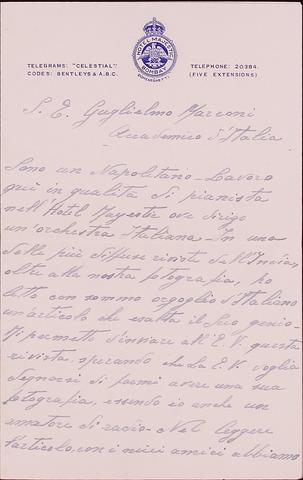 HOTEL MAJESTIC
BOMBAY
TELEGRAMS: "CELESTIAL"
CODES: BENTLEYS & A.B.C.
TELEPHONE: 20384.
(FIVE EXTENSIONS)
S. E. Guglielmo Marconi
Accademico d'Italia
Sono un Napoletano - Lavoro
qui in qualità di pianista
nell'Hotel Magestic ove dirigo
un'orchestra Italiana. In una
delle più diffuse riviste dell'India,
oltre alla nostra fotografia, ho
letto con sommo orgoglio d'Italiano
un articolo che esalta il Suo genio.
Mi permetto d'inviare all'E. V. questa
rivista, sperando che La E. V. voglia
degnarsi di farmi avere una sua
fotografia, essendo io anche un
amatore di radio. Nel leggere
l'articolo, con i miei amici abbiamo